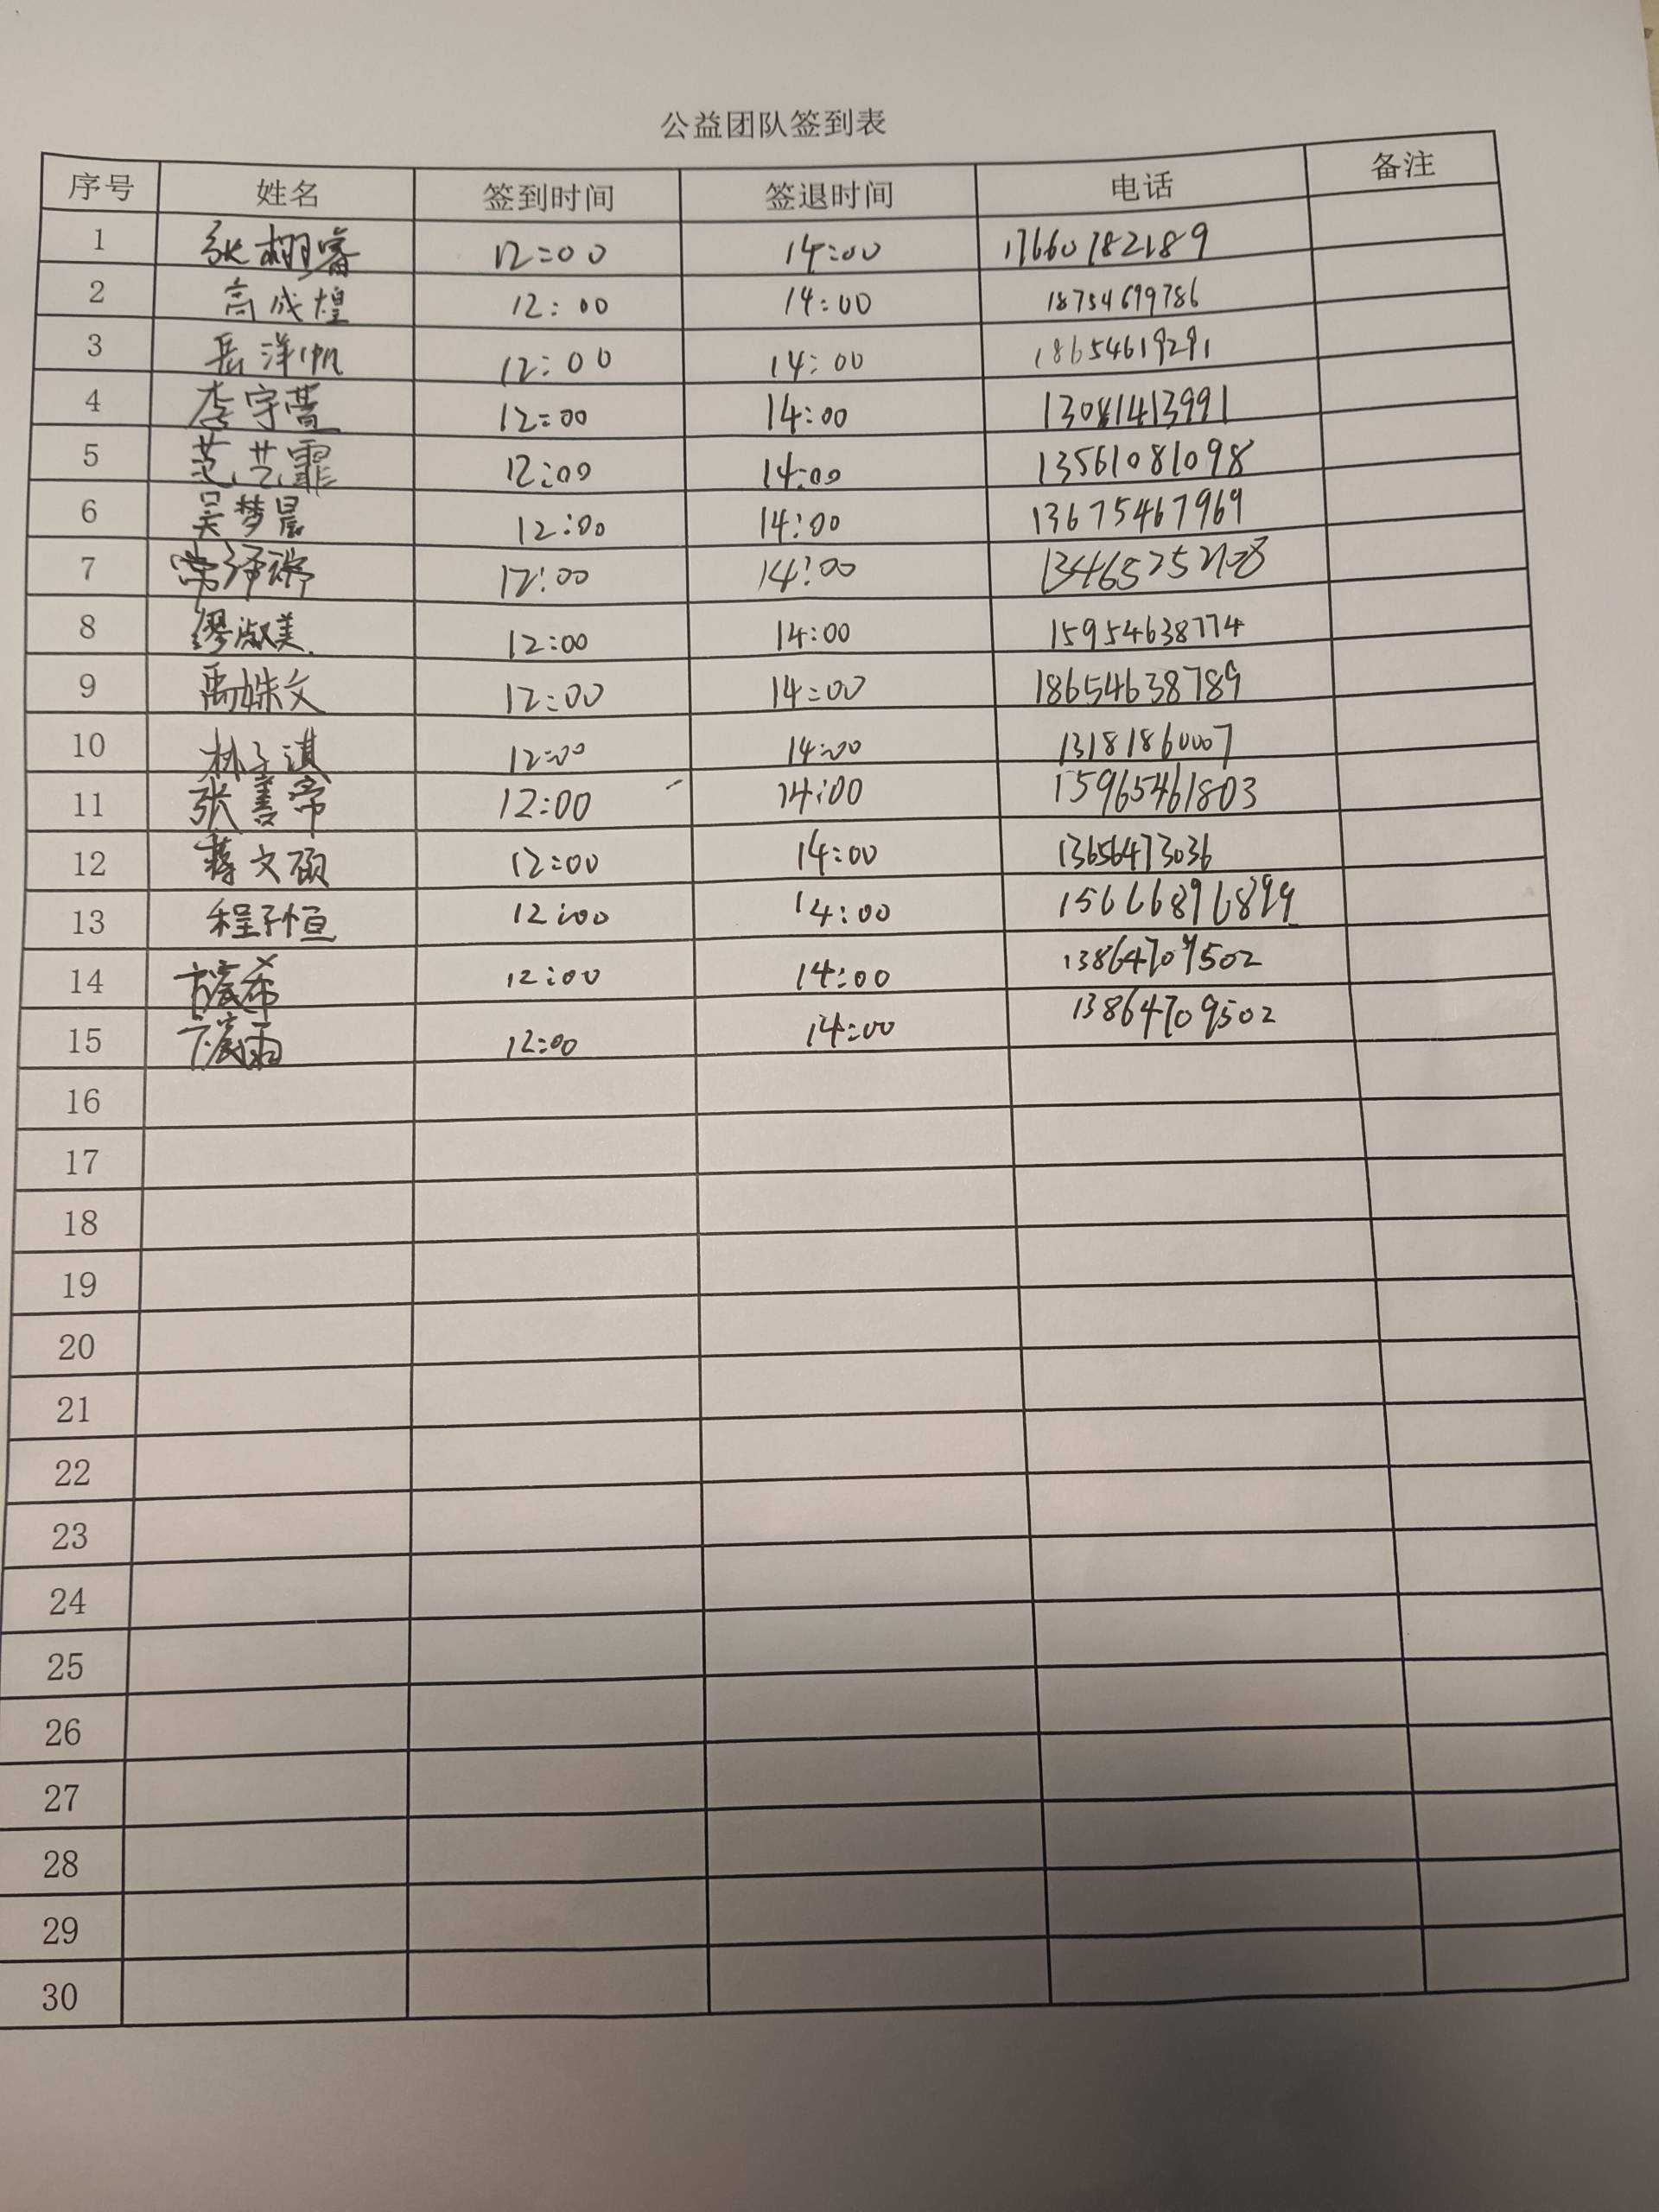 公益团队签到表
序号 姓名 签到时间 签退时间 电话 备注
1 张栩睿 12:00 14:00 17660782189
2 高成煌 12:00 14:00 18754699786
3 岳洋帆 12:00 14:00 18654619291
4 李宇萱 12:00 14:00 13081413991
5 范艺霏 12:00 14:00 13561081098
6 吴梦晨 12:00 14:00 13675467969
7 常泽 12:00 14:00
8 缪淑美 12:00 14:00 15954638774
9 禹姝文 12:00 14:00 18654638789
10 林子淇 12:00 14:00 13181860007
11 张善常 12:00 14:00 15965461803
12 蒋文硕 12:00 14:00 13656473036
13 程子恒 12:00 14:00 15666896899
14 希 12:00 14:00 13864709502
15 雨 12:00 14:00 13864709502
16
17
18
19
20
21
22
23
24
25
26
27
28
29
30